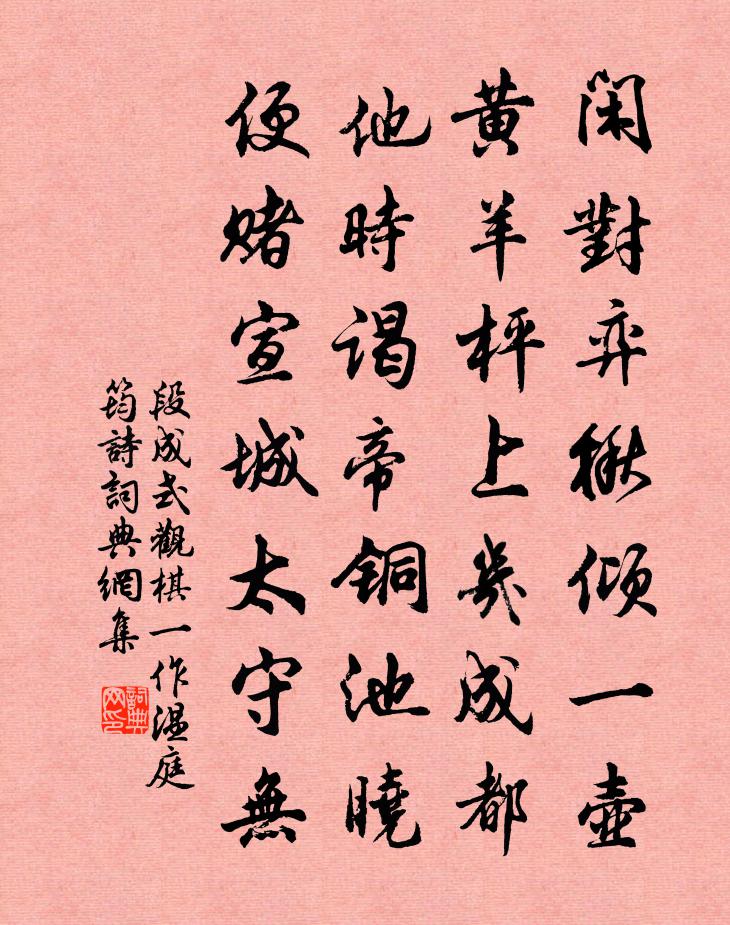 閑對弈楸傾一壺
黄羊枰上幾成都
他時谒帝铜池曉
便赌宣城太守無
段成式觀棋一作溫庭
筠詩詞典網集
詞典
网印